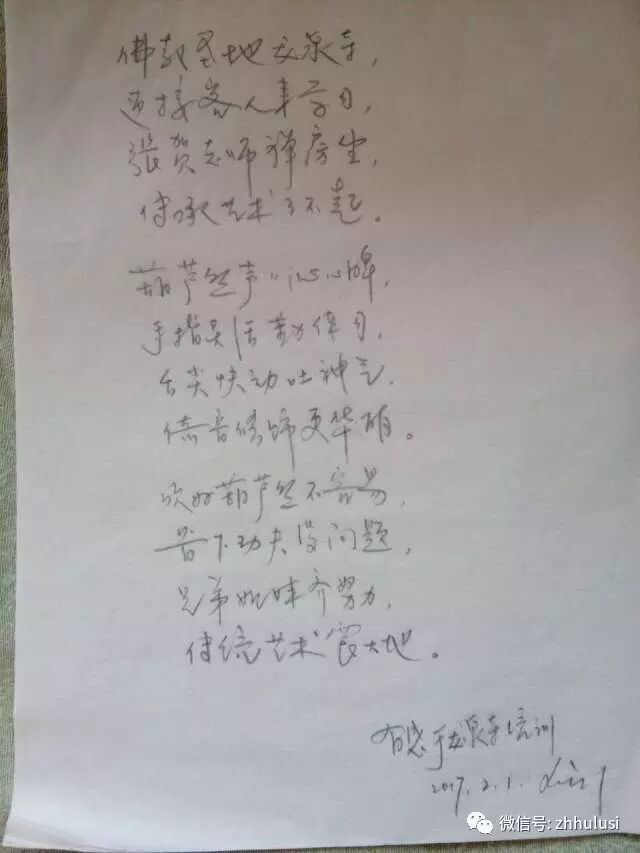 佛教圣地龙泉寺，
迎接客人来学习，
张贺老师禅房坐，
传承艺术了不起。
葫芦丝声沁心脾，
手指灵活勤练习，
舌尖快动吐神气，
倚音修饰更华丽。
吹好葫芦丝不容易，
苦下功夫没问题，
兄弟姐妹齐努力，
传统艺术震大地。
有感于龙泉寺培训
2017.2.1.
微信号: zhhulusi